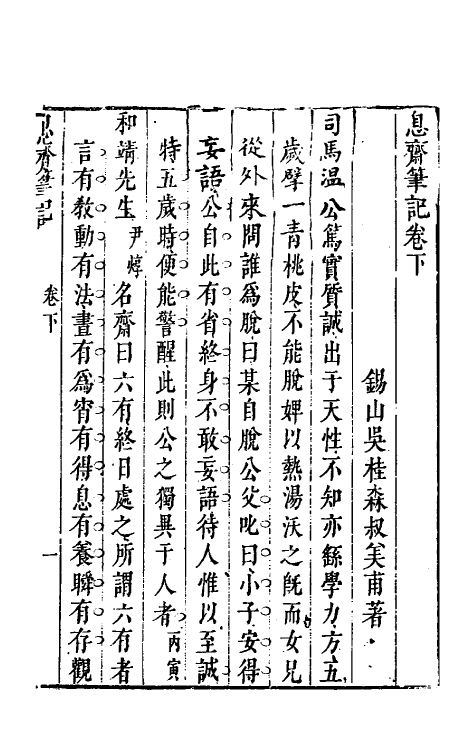 息齋筆記卷下
錫山吳桂森叔美甫著
司馬溫公篤實質誠出于天性不知亦繇學力方五
歲擘一青桃皮不能脫婢以熱湯沃之既而女兄
從外來問誰為脫曰某自脫公父叱曰小子安得
妄語公自此有省終身不敢妄語待人惟以至誠
特五歲時便能警醒此則公之獨異于人者丙寅
和靖先生尹焞名齋曰六有終日處之所謂六有者
言有教動有法晝有為宵有得息有養瞬有存觀
息齋筆記
卷下
一